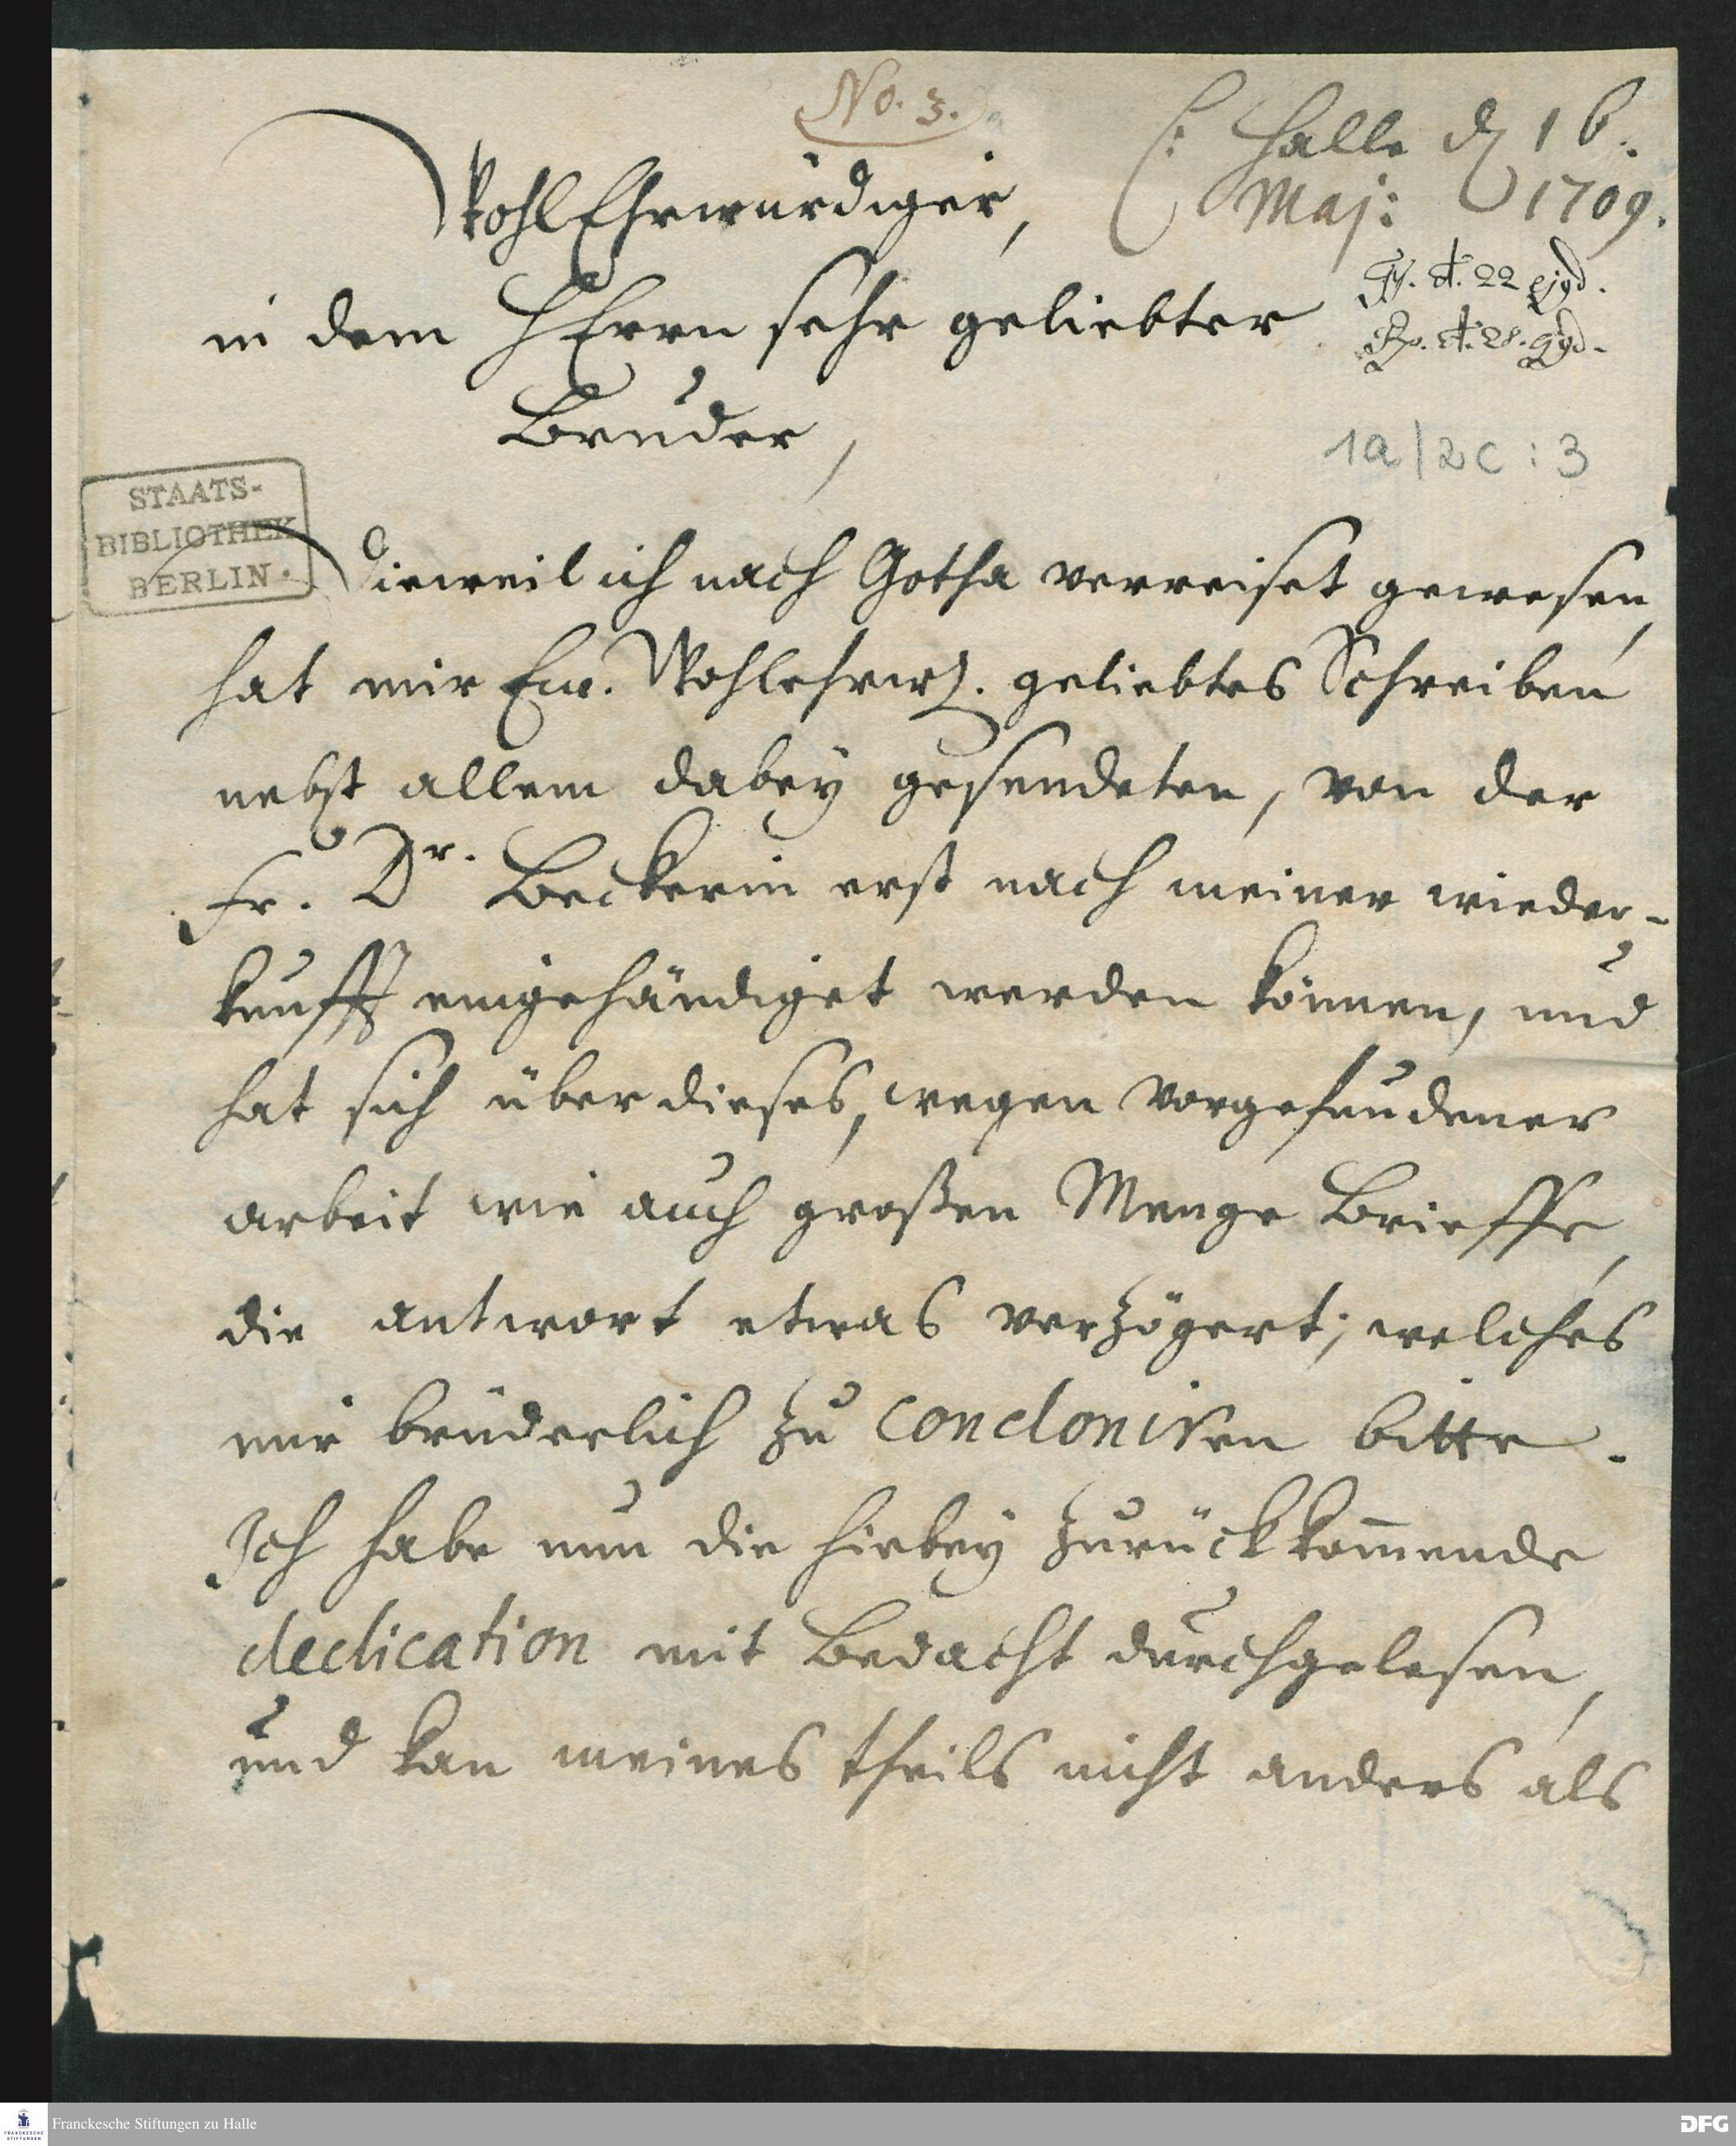 No. 3.
Halle d 16.
Maj: 1709.
WohlEhrwürdiger,
in dem HErrn sehr geliebter
Bruder,
d. 22 ejusd.
d. 28.
1a/2c : 3
STAATS-
BIBLIOTHEK
BERLIN.
Dieweil ich nach Gotha verreiset gewesen,
hat mir Ew. Wohlehrw. geliebtes Schreiben
nebst allem dabey gesendeten, von der
Fr. Dr. Beckerin erst nach meiner wieder-
kunfft eingehändiget werden können, und
hat sich über dieses, wegen vorgefundener
arbeit wie auch großen Menge Brieffe,
die antwort etwas verzögert; welches
mir brüderlich zu condoniren bitte.
Ich habe nun die hiebey zurückkom̄ende
dedication mit Bedacht durchgelesen,
und kan meines theils nicht anders als
Franckesche Stiftungen zu Halle
FRANCKESCHE
STIFTUNGEN
DFG